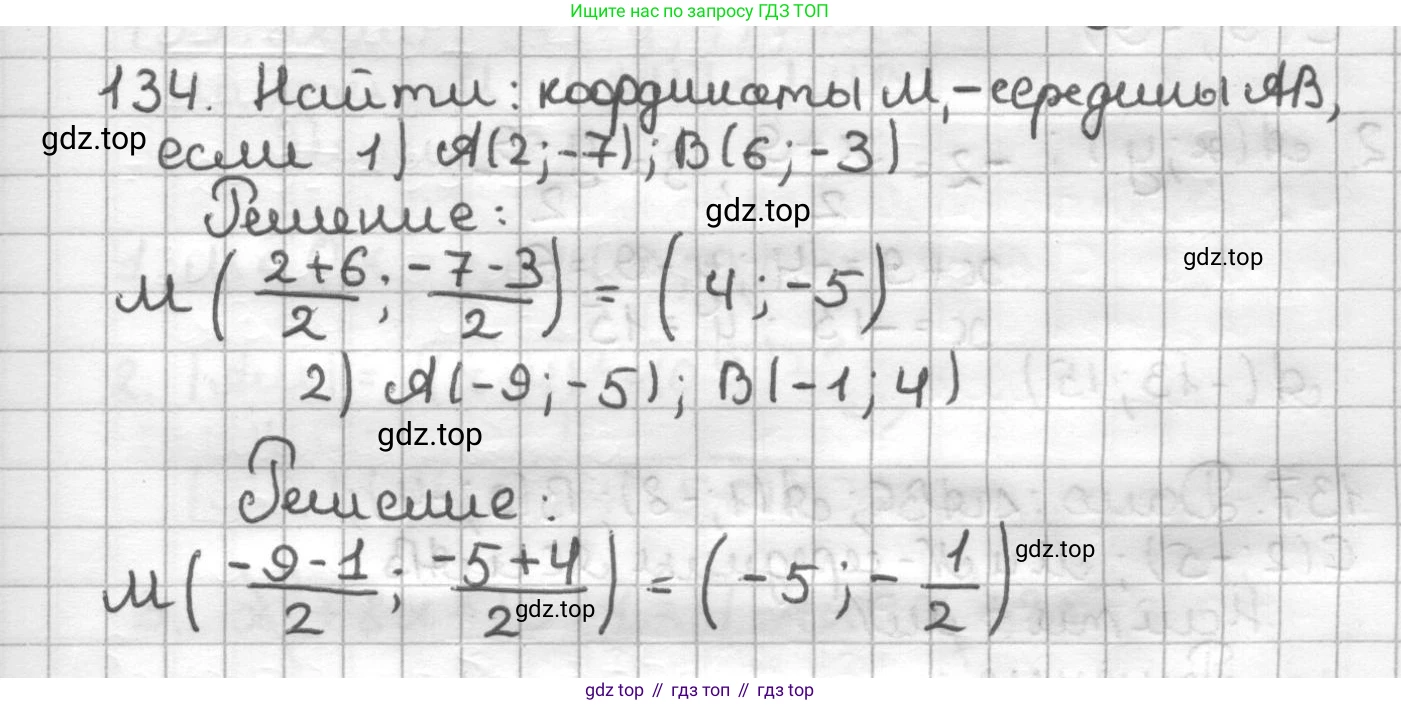 Ищите нас по запросу ГДЗ ТОП
134. Найти: координаты М,-середины АВ,
gdz.top
если 1) А(2;-7); В(6;-3)
Решение:
gdz.top
gdz.top
М((2+6)/2; (-7-3)/2) = (4;-5)
2) А(-9;-5); В(-1;4)
gdz.top
Решение:
М((-9-1)/2; (-5+4)/2) = (-5;-1/2)
gdz.top
gdz.top
gdz top // гдз топ // gdz top